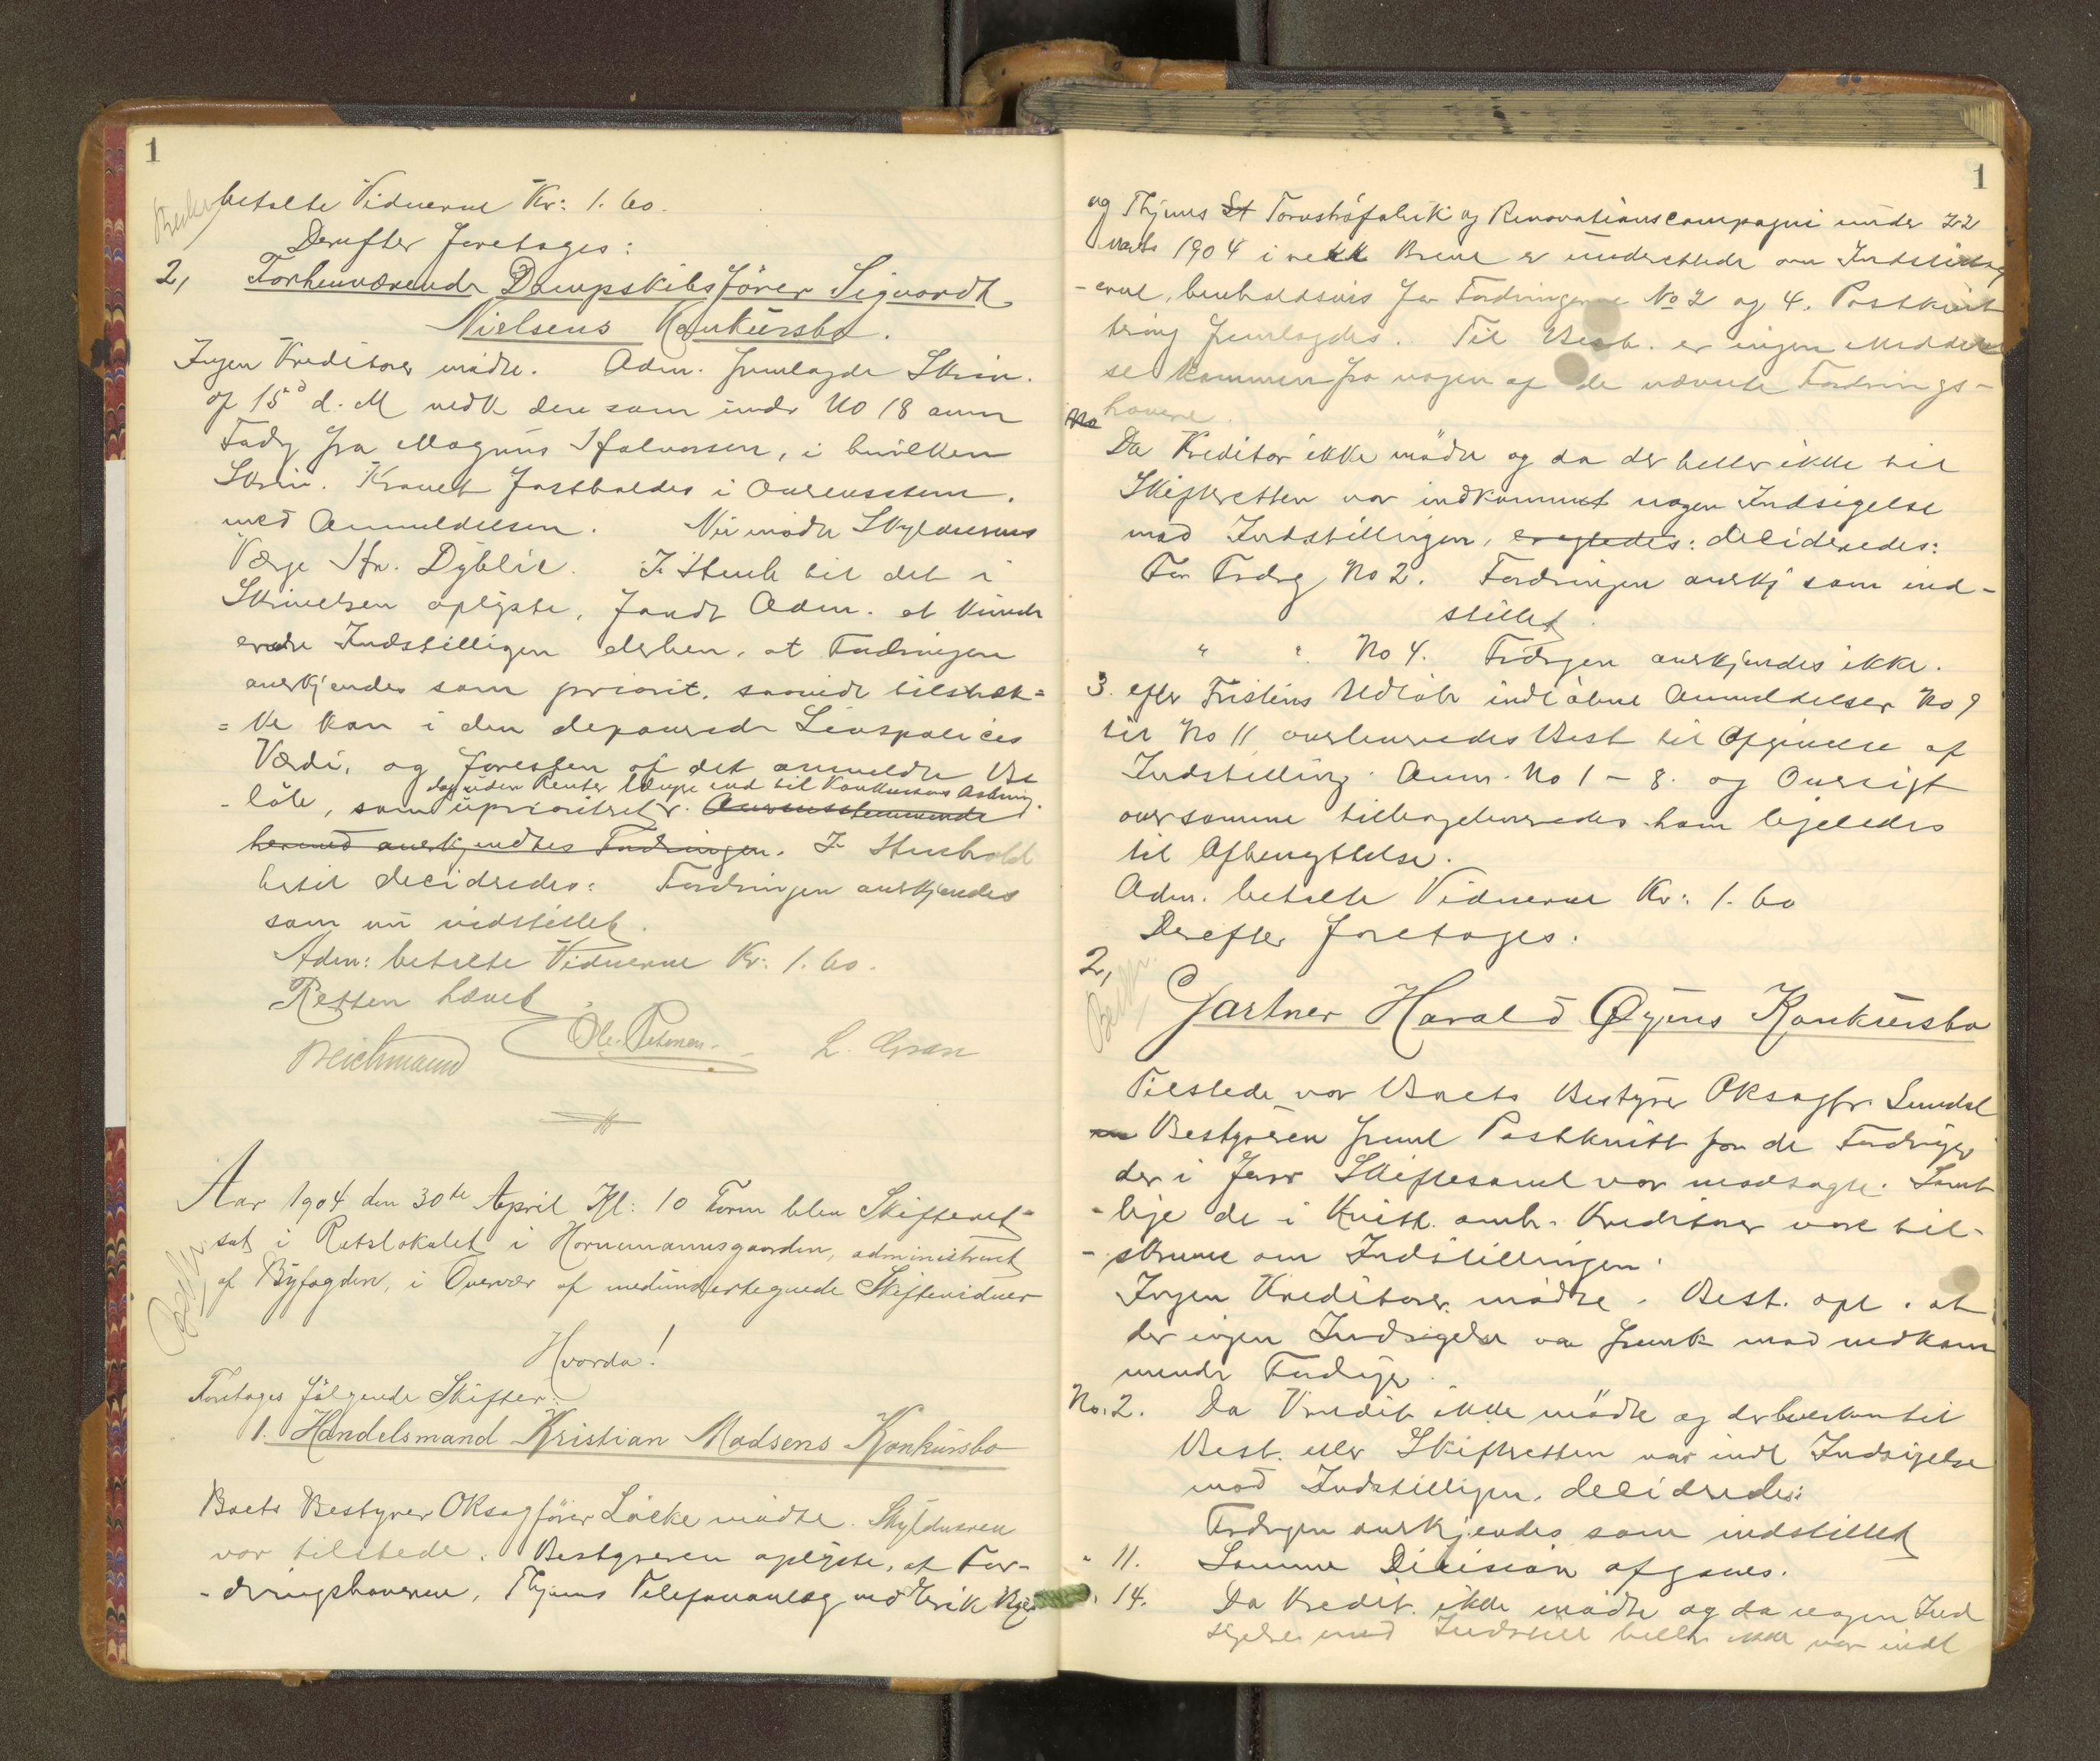 1
betalte Vidnerne Kr: 1.60.
Derefter foretages:
2, Forhenværende Dampskibsfører Sigvardt
Nielsens Konkursbo.
Ingen Kreditorer mødte. Adm. fremlagde Skriv.
af 15d d. M vedk den som under No 18 anm
Fodrg fra Magnus Halvorsen, i hvilken
Skriv. Kravet fastholdes i Overensstem.
med Anmeldelsen. Nu mødte Skyldnerens
Værge Hr. Dyblie. I Henh til det i
Skrivelsen oplyste, fandt Adm. at kunde
endre Indstilligen derhen, at Fodringen
anerkjendes som priorit. saavidt tilstræk=
=ke kan i den deponerede Livspolices
Værdi, og foresten af det anmeldte Be
dog uden Renter længre end til Konkursens Aabning.
-löb, som uprioritret. Overensstemmende
hermed anerkjendtes Fodringen. I Henhold
hertil decideredes: Fordringen anerkjendes
som nu indstillet.
Adm: betalte Vidnerne Kr: 1.60.
Retten hævet.
Ole Petersen L. Gran
Aar 1904 den 30te April Kl: 10 Form blev Skifteret=
sat i Retslokalet i Hornemannsgaarden, administreret
af Byfogden, i Overvær af medundertegnede Skiftevidner
Hvorda!
Foretages følgende Skifter:
1. Handelsmand Kristian Madsens Konkursbo
Boets Bestyrer OKsagfører Löcke mødte. Skyldneren
var tilstede. Bestyreren oplyste, at For-
-dringshaverne, Thjems Telefonanlæg ved Erik
1
og Thjems St Torvströfabrik og Renovationscompagni under 22
marts 1904 i rekk Breve er underettede om Indstilling
-erne, henholdsvis for Fordringerne No 2 og 4. Postkvit
tering fremlagdes. Til Besb. er ingen Meddelel
se kommen fra nogen af de nævnte Fordrings-
havere.
No
Da Kreditor ikke mødte og da der heller ikke til
Skifteretten var indkommet nogen Indsigelse
mod Indstillingen, decideredes:
For Fodrg No 2. Fordringen anerkj som ind-
stillet.
" " No 4. Fodrgen anerkjendes ikke.
3. efter Fristens Udlöb indlöbne Anmeldelser No 9
til No 11 overleveredes Best til Afgivelse af
Indstilling. Anm. No 1 - 8. og Oversigt
over samme tilbageleveredes ham ligeledes
til Afbenyttelse.
Adm. betalte Vidnerne Kr: 1.60
Derefter foretages.
2,
Gartner Harald Øyens Konkursbo
Tilstede var Boets Bestyrer OKsagfr. Lundal
Bestyreren freml Postkvitt for de Fodringer
der i forr Skiftesaml var modsagte. Samt
-lige de i Kvitt. omh. Kreditorer vare til-
-skrevne om Indstillingen.
Ingen Kreditorer mødte. Best. opl. at
der ingen Indsigelse var fremk mod vedkom
mende Fodriger.
No. 2. Da Kredit ikke mødte og der hverken til
Best. eller Skifteretten var indl Indsigelse
mod Indstilligen, decideredes:
Fodrgen anerkjendes som indstillet
" 11. Samme Decision afgaves.
" 14. Da Kredit. ikke mødte og da nogen Ind
sigelse mod Indstill heller ikke var indl